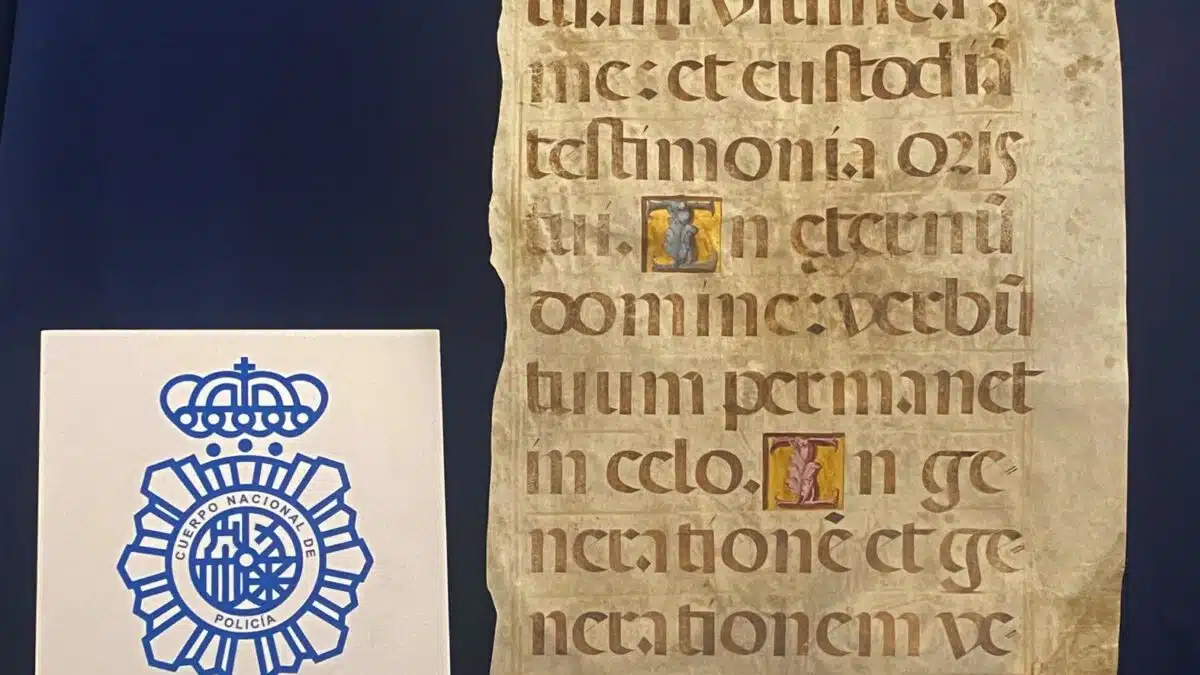 CUERPO NACIONAL DE
POLICÍA
me: et custodiā
testimonia oris
tui. In ęternū
domine: verbū
tuum permanet
in celo. In ge=
nerationē et ge=
nerationem ve-